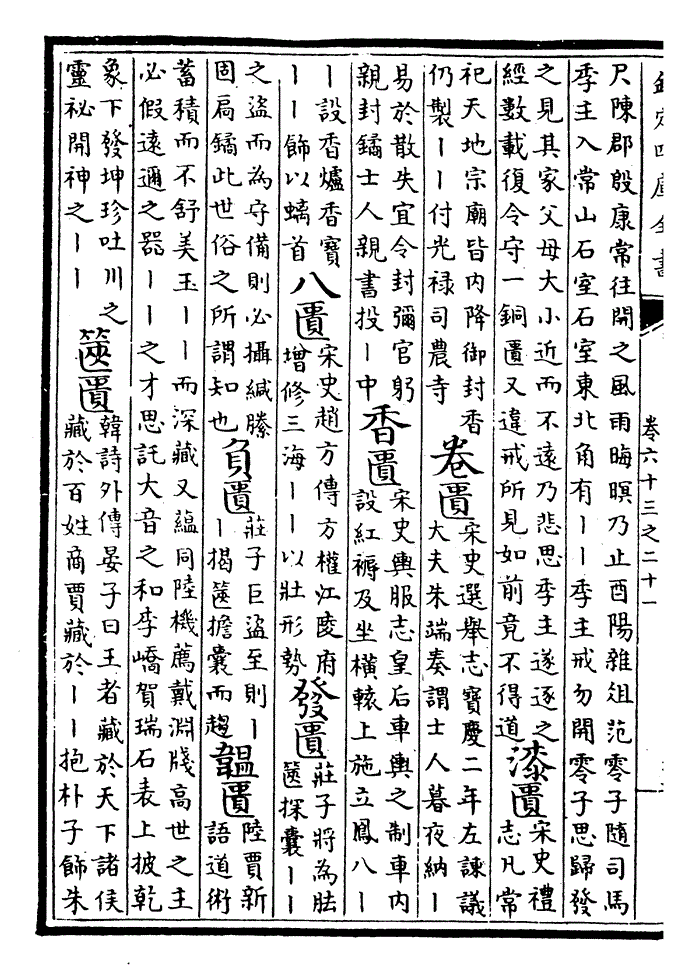 欽定四庫全書
卷六十三之二十一
尺陳郡殷康常往開之風雨晦暝乃止酉陽雜俎范零子隨司馬
季主入常山石室石室東北角有｜｜季主戒勿開零子思歸發
之見其家父母大小近而不遠乃悲思季主遂逐之
經數載復令守一銅匱又違戒所見如前竟不得道
漆匱
宋史禮
志凡常
祀天地宗廟皆内降御封香
仍製｜｜付光禄司農寺
卷匱
宋史選舉志寶慶二年左諫議
大夫朱端奏謂士人暮夜納｜
易於散失宜令封彌官躬
親封鐍士人親書投｜中
香匱
宋史輿服志皇后車輿之制車内
設紅褥及坐橫轅上施立鳳八｜
｜設香爐香寶
｜｜飾以螭首
八匱
宋史趙方傳方權江陵府
增修三海｜｜以壯形勢
發匱
莊子將為胠
篋探囊｜｜
之盜而為守備則必攝緘縢
固扃鐍此世俗之所謂知也
負匱
莊子巨盜至則｜
｜揭篋擔囊而趨
韞匱
陸賈新
語道術
蓄積而不舒美玉｜｜而深藏又蘊同陸機薦戴淵牋高世之主
必假遠邇之器｜｜之才思託大音之和李嶠賀瑞石表上披乾
象下發坤珍吐川之
靈祕開神之｜｜
篋匱
韓詩外傳晏子曰王者藏於天下諸侯
藏於百姓商賈藏於｜｜抱朴子飾朱